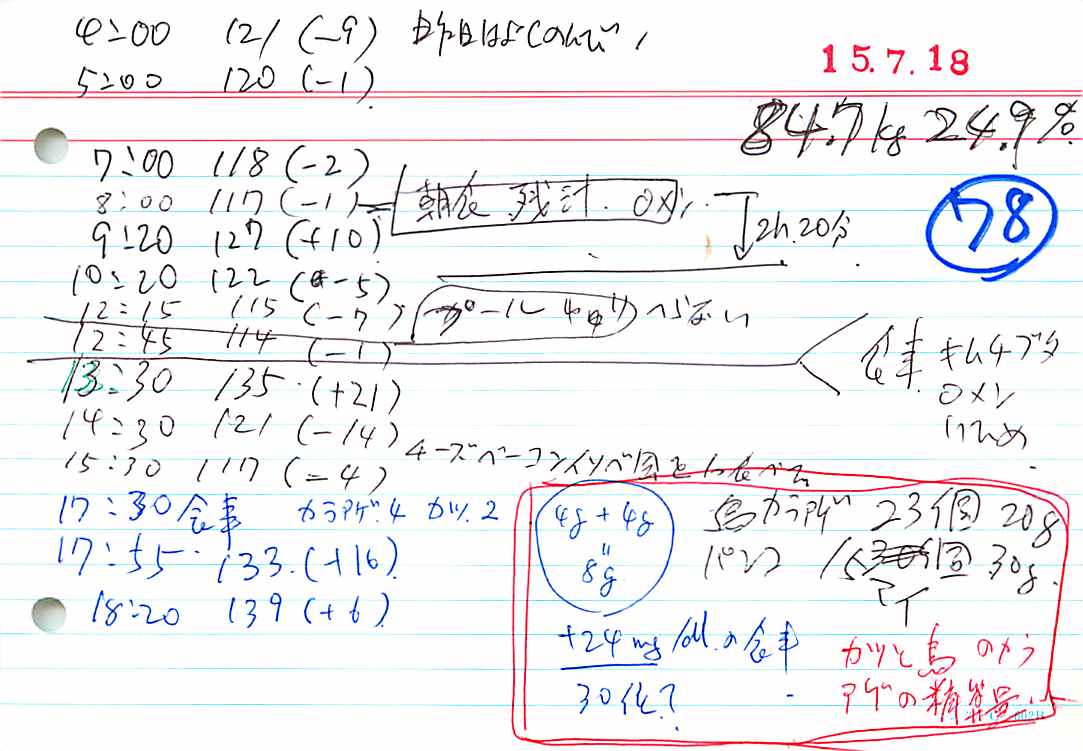 4:00 121 (-9) 昨日は
15.7.18
5:00 120 (-1)
84.7kg 24.9%
7:00 118 (-2)
8:00 117 (-1) 朝食 残計. 0メン
78
9:20 127 (+10) 2h.20分
10:20 122 (-5)
12:15 115 (-7) プール へらない
12:45 114 (-1)
食事 キムチブタ
13:30 135 (+21) 0メン
14:30 121 (-14)
15:30 117 (-4) チーズベーコン
17:30 食事 カラアゲ.4 カツ.2
17:55 133.(+16)
18:20 139 (+6)
4g+4g
"
8g
鳥カラアゲ 23個 20g
パン 15 30g.
+24 mg/dl.の食事
30代?
カツと鳥のカラ
アゲの精算量